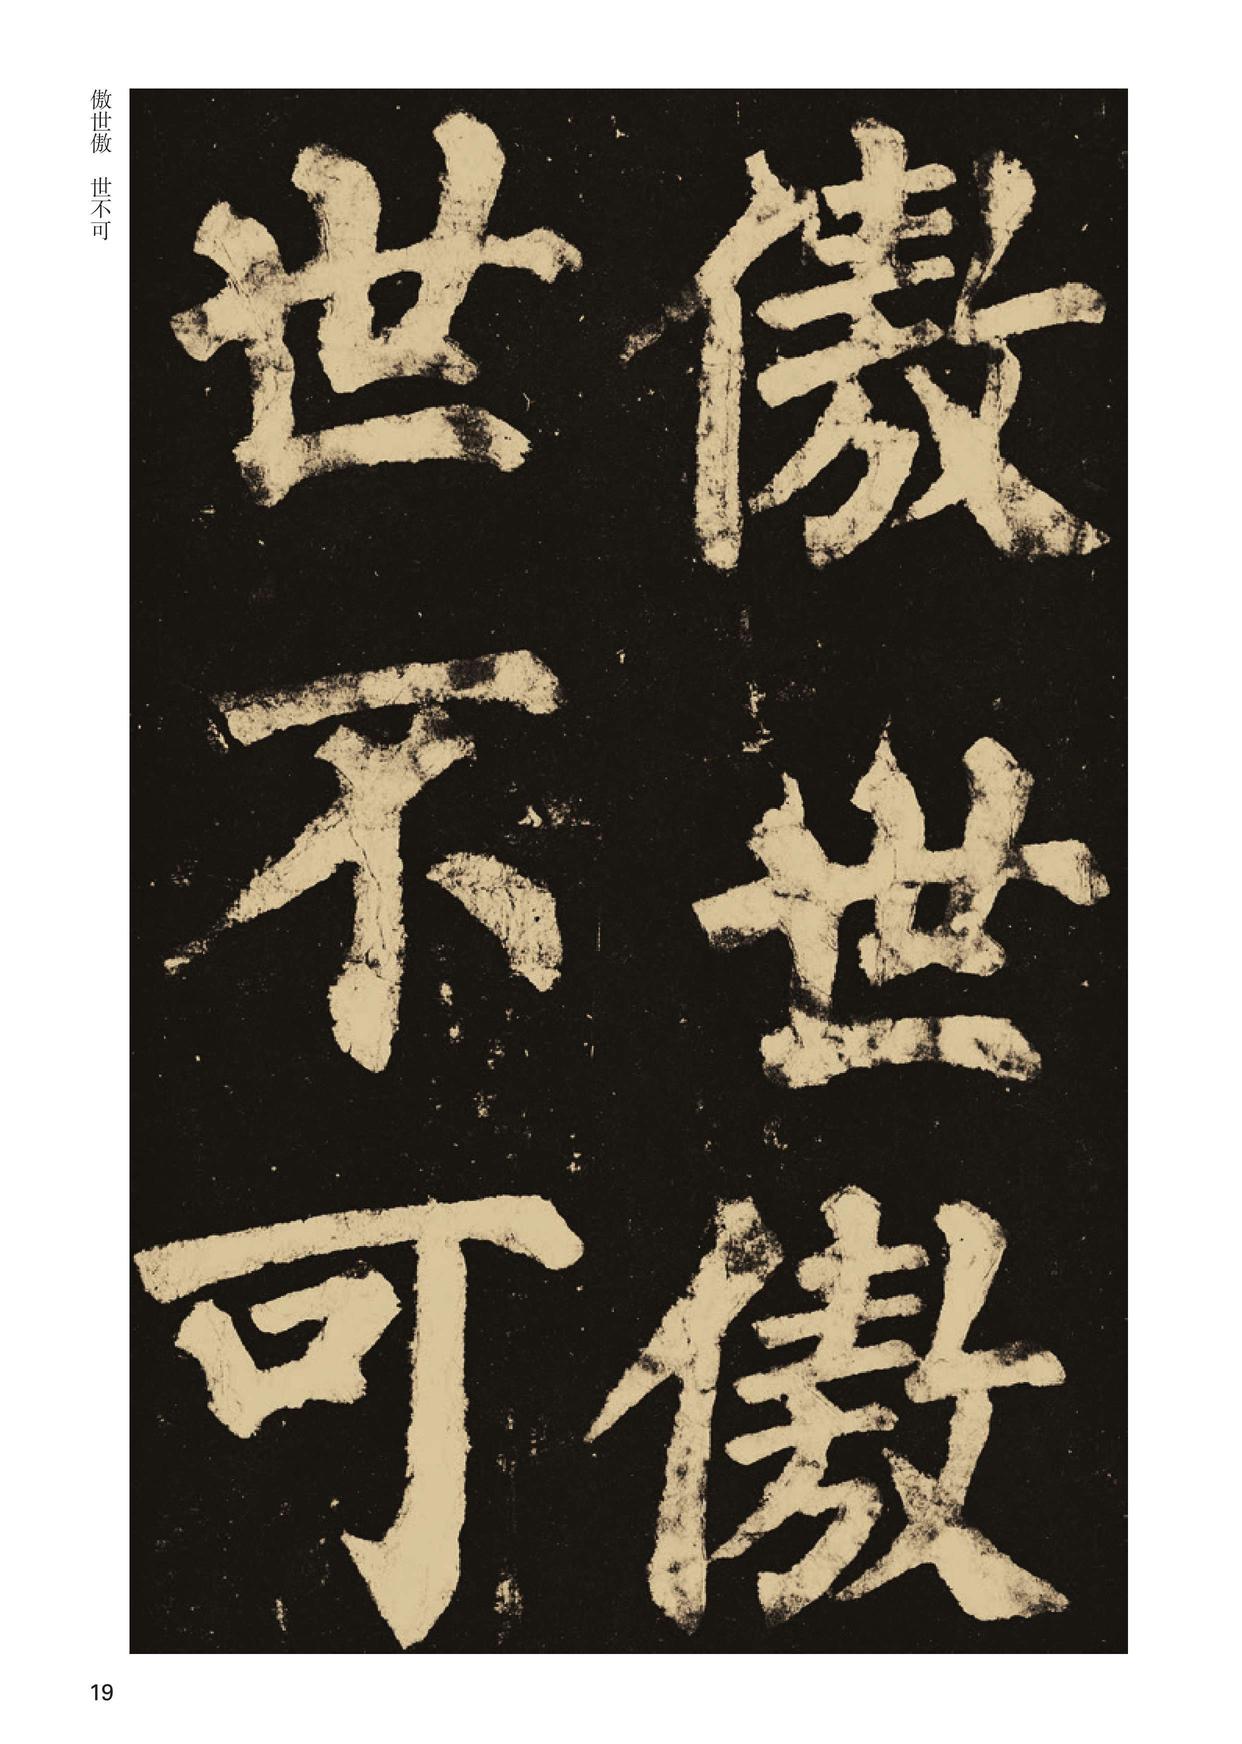 傲世傲
世不可
傲世傲　世不可
19